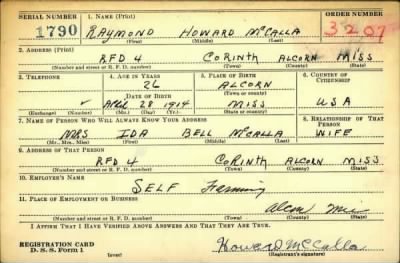 SERIAL NUMBER 1. NAME (Print) ORDER NUMBER
1790 RAYMOND HOWARD McCALLA 3207
(First) (Middle) (Last)
2. ADDRESS (Print)
RFD 4 CORINTH ALCORN MISS
(Number and street or R. F. D. number) (Town) (County) (State)
3. TELEPHONE 4. AGE IN YEARS 5. PLACE OF BIRTH 6. COUNTRY OF CITIZENSHIP
26 ALCORN
DATE OF BIRTH (Town or county)
APRIL 28 1914 MISS USA
(Exchange) (Number) (Mo.) (Day) (Yr.) (State or country)
7. NAME OF PERSON WHO WILL ALWAYS KNOW YOUR ADDRESS 8. RELATIONSHIP OF THAT PERSON
MRS IDA BELL McCALLA WIFE
(Mr., Mrs., Miss) (First) (Middle) (Last)
9. ADDRESS OF THAT PERSON
RFD 4 CORINTH ALCORN MISS.
(Number and street or R. F. D. number) (Town) (County) (State)
10. EMPLOYER'S NAME
SELF Farming
11. PLACE OF EMPLOYMENT OR BUSINESS
Alcorn Miss
(Number and street or R. F. D. number) (Town) (County) (State)
I AFFIRM THAT I HAVE VERIFIED ABOVE ANSWERS AND THAT THEY ARE TRUE.
REGISTRATION CARD
D. S. S. Form 1 Howard McCalla
(over) (Registrant's signature)